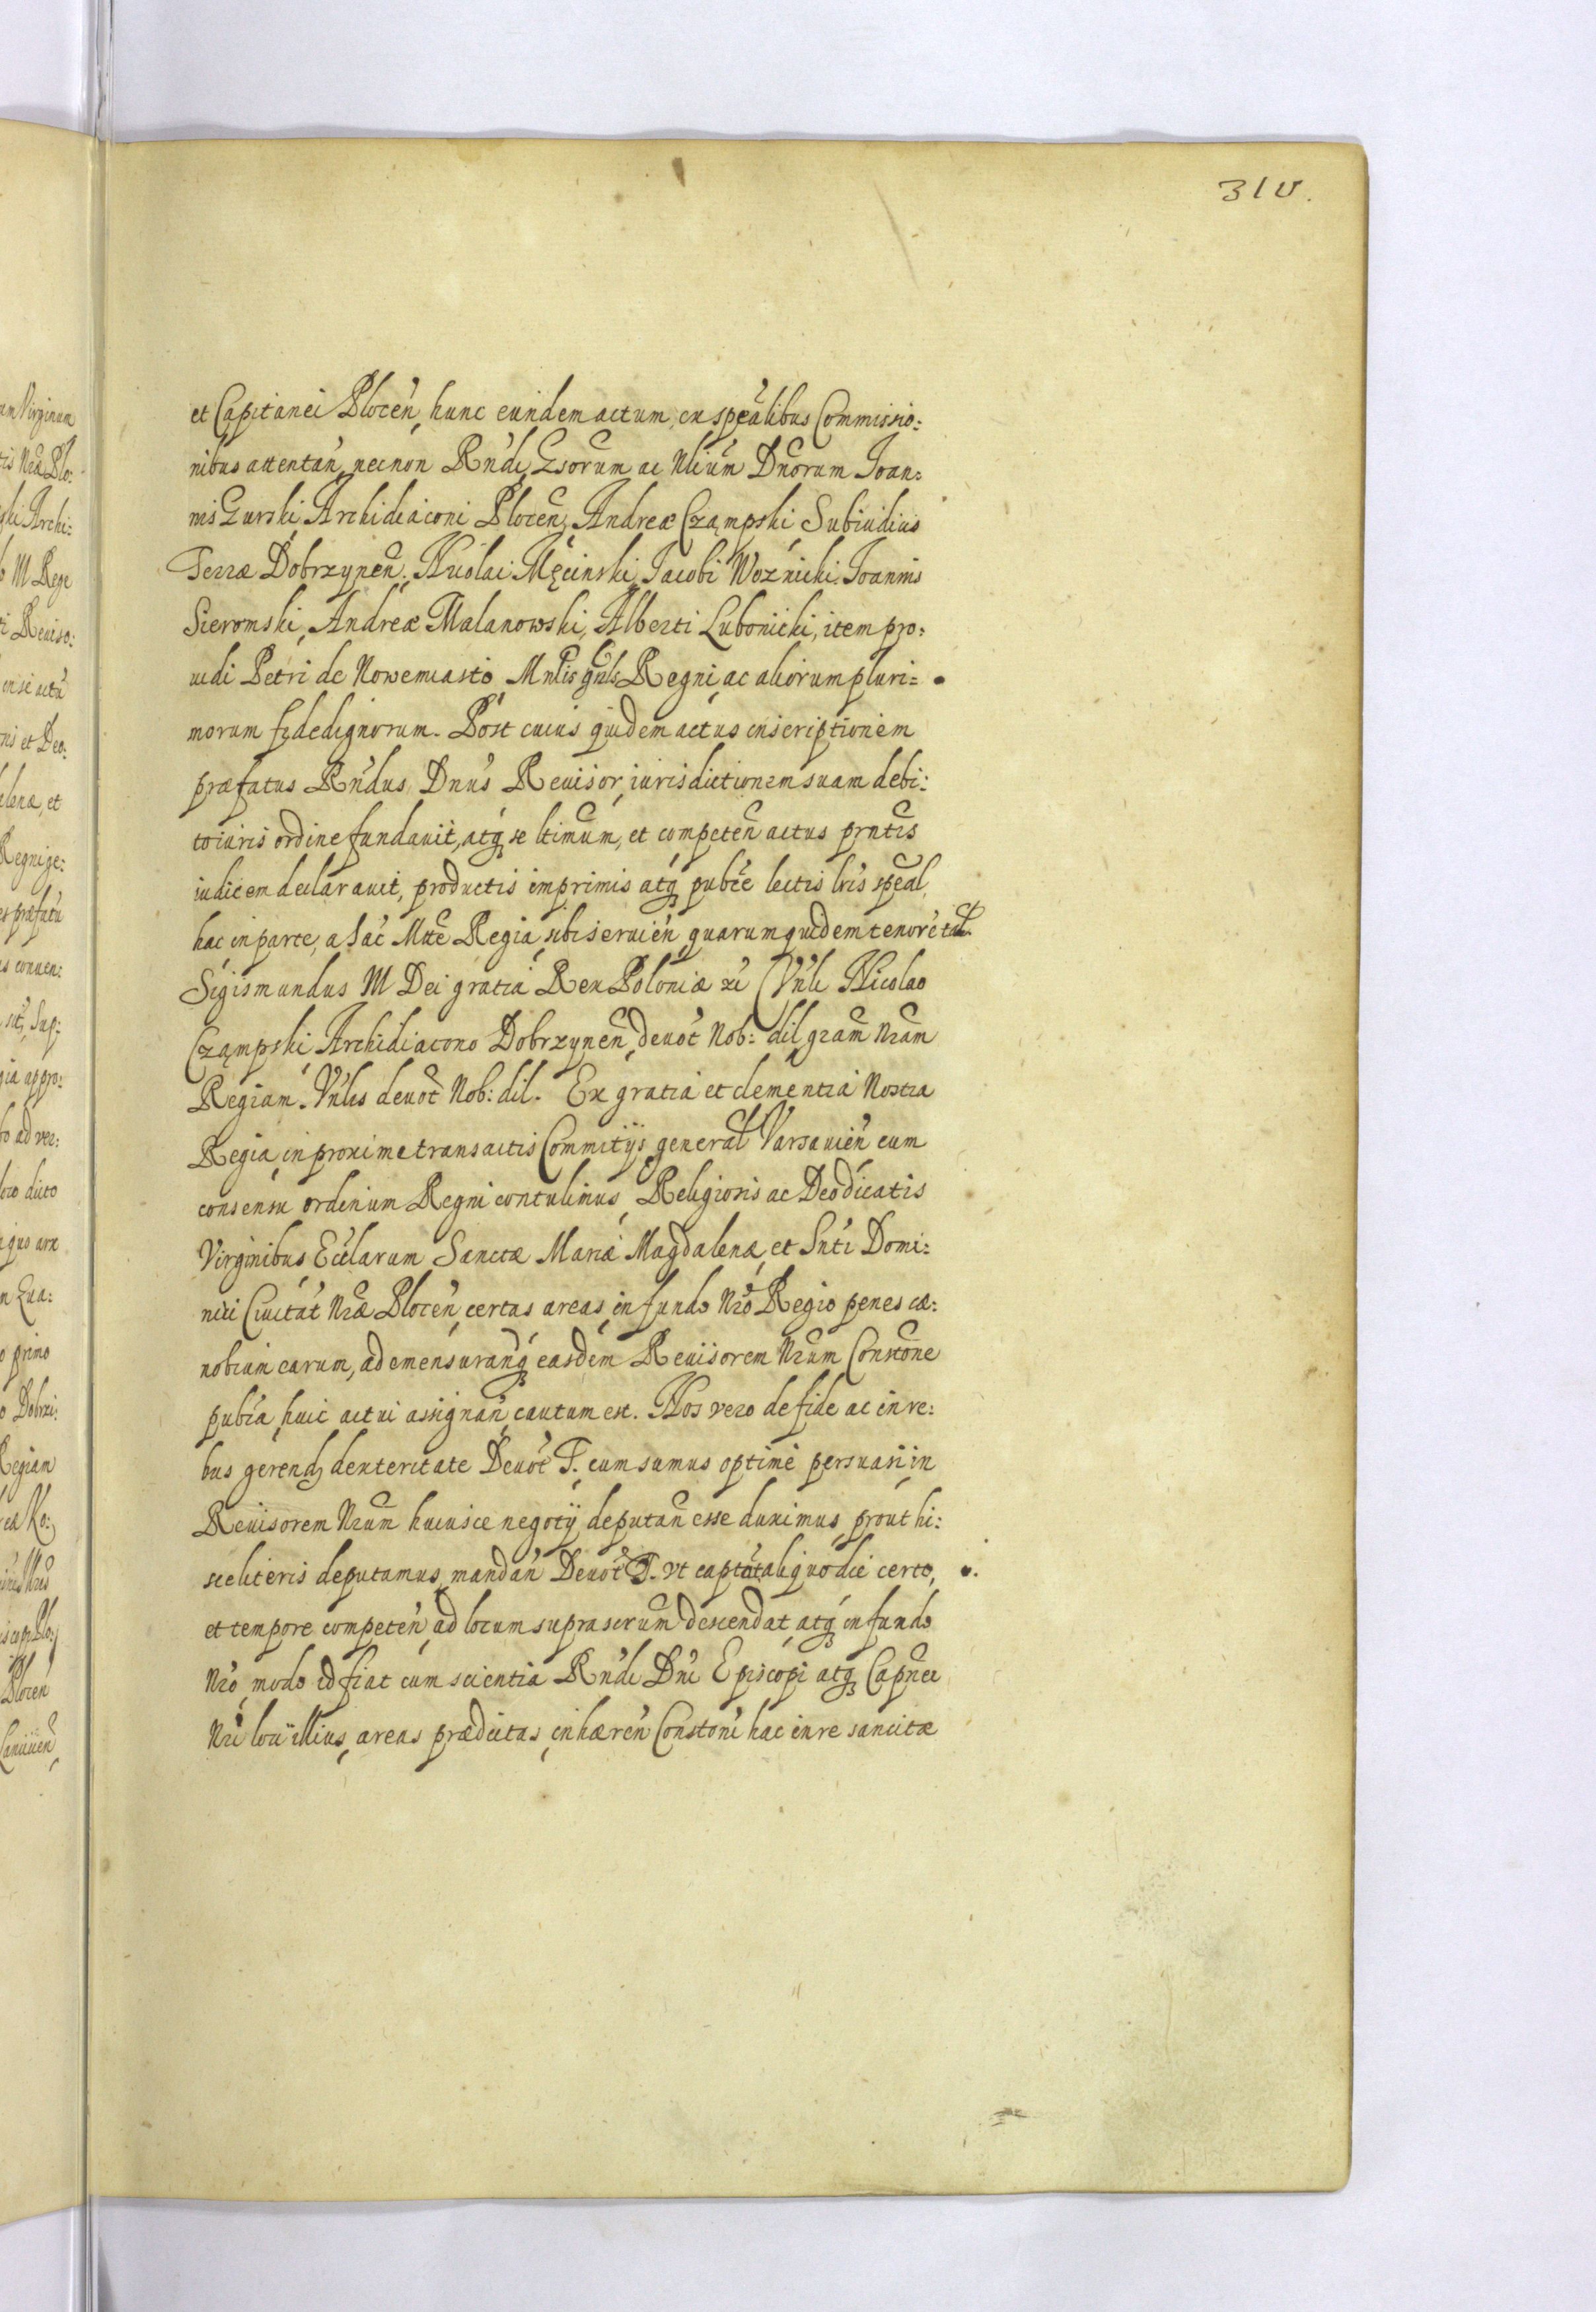 31v.
et Capitanei Plocen̄, hunc eundem actum ex sp̄ealibus Commissio:
nibus attentan̄, necnon Rn̄di, Gsorum ac Nlium̄ Dn̄orum Joan:
nis Gurski, Archidiaconi Plocen̄, Andreæ Czampski, Subiudicis
Terræ Dobrzynen̄. Nicolai Męcinski, Jacobi Woznicki. Joannis
Sieromski, Andreæ Malanowski, Alberti Lubonicki, item pro:
uidi Petri de Nowemiasto Regni, ac aliorum pluri=
morum fidedignorum. Post cuius quidem actus inscriptionem
præfatus Rn̄dus Dnūs Reuisor, iurisdictionem suam debi:
to iuris ordine fundauit, atq̨ se ltimum̄, et competen̄ actus prn̄tis
iudicem declarauit, productis imprimis atq̨ publ̄ce lectis lrīs sp̄eal
hac in parte, a Sac̄ Mtt̄e Regia, sibi seruien̄, quarum quidem tenor ē tal̄.
Sigismundus III Dei gratia Rex Poloniæ &c̄ Vn̄li Nicolao
Czampski, Archidiacono Dobrzynen̄, deuot̄ Nob: dil̨ gram̄ Nram̄
Regiam. Vn̄lis deuot̄ Nob: dil. Ex gratia et clementia Nostra
Regia, in proxime transactis Commitijs general̄ Varsauien̄ cum
consensu ordinium Regni contulimus, Religiosis ac Deo dicatis
Virginibus Ecc̄larum Sanctæ Mariæ Magdalenæ, et Sn̄ti Domi:
nici Ciuitat̄ Nrǣ Plocen̄, certas areas, in fundo Nrō Regio penes cæ:
nobium earum, ad emensurand̄q̨ easdem Reuisorem Nrum̄ Constōne
publ̄a, huic actui assignan̄ cautum est. Nos vero de fide ac in re:
bus gerend̨ dexteritate Deuot̄ T. cum sumus optime persuasi, in
Reuisorem Nrum̄ huiusce negotij deputan̄ esse duximus, prout hi:
sce literis deputamus, mandan̄ Deuot̄ T. vt captat̄ aliquo die certo,
et tempore competen̄ ad locum suprascrum̄ descendat, atq̨ in fundo
Nrō, modo id fiat cum scientia Rn̄di Dn̄i Episcopi atq̨ Capn̄ei
Nrī loci illius, areas prædictas, inhæren̄ Constoni hac in re sancitæ